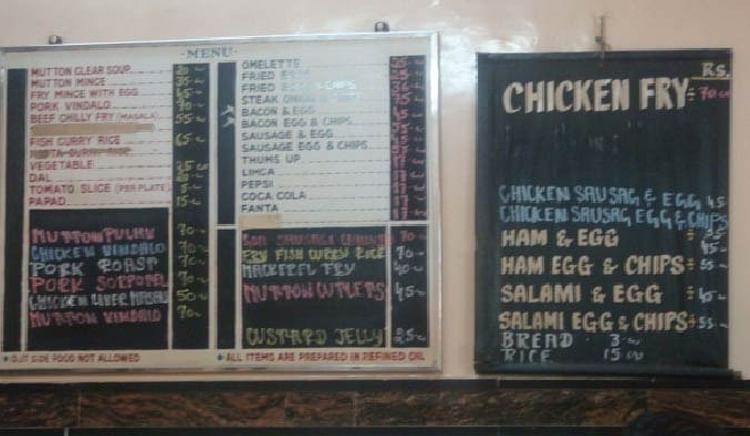 MENU
MUTTON CLEAR SOUP
MUTTON MINCE 35
FRY MINCE WITH EGG 45
PORK VINDALO 70
BEEF CHILLY FRY (MASALA) 55
FISH CURRY RICE 65
CURRY RICE
VEGETABLE 25
DAL
TOMATO SLICE (PER PLATE) 5
PAPAD 15
MUTTON PULAV 70
CHICKEN VINDALO 70
PORK ROAST 70
PORK SORPOTEL 70
CHICKEN LIVER MASALA 50
MUTTON VINDALO 70
OUT SIDE FOOD NOT ALLOWED
OMELETTE
FRIED EGGS
FRIED EGG & CHIPS
STEAK
BACON & EGG
BACON EGG & CHIPS
SAUSAGE & EGG
SAUSAGE EGG & CHIPS
THUMS UP
LIMCA
PEPSI
COCA COLA
FANTA
SAUSAGE 70
FRY FISH CURRY RICE 70
MACKEREL FRY 40
MUTTON CUTLETS 45
CUSTARD JELLY 25
ALL ITEMS ARE PREPARED IN REFINED OIL
Rs.
CHICKEN FRY = 70
CHICKEN SAUSAG & EGG 45
CHICKEN SAUSAG EGG & CHIPS
HAM & EGG 45
HAM EGG & CHIPS = 55
SALAMI & EGG = 45
SALAMI EGG & CHIPS = 55
BREAD 3
RICE 15